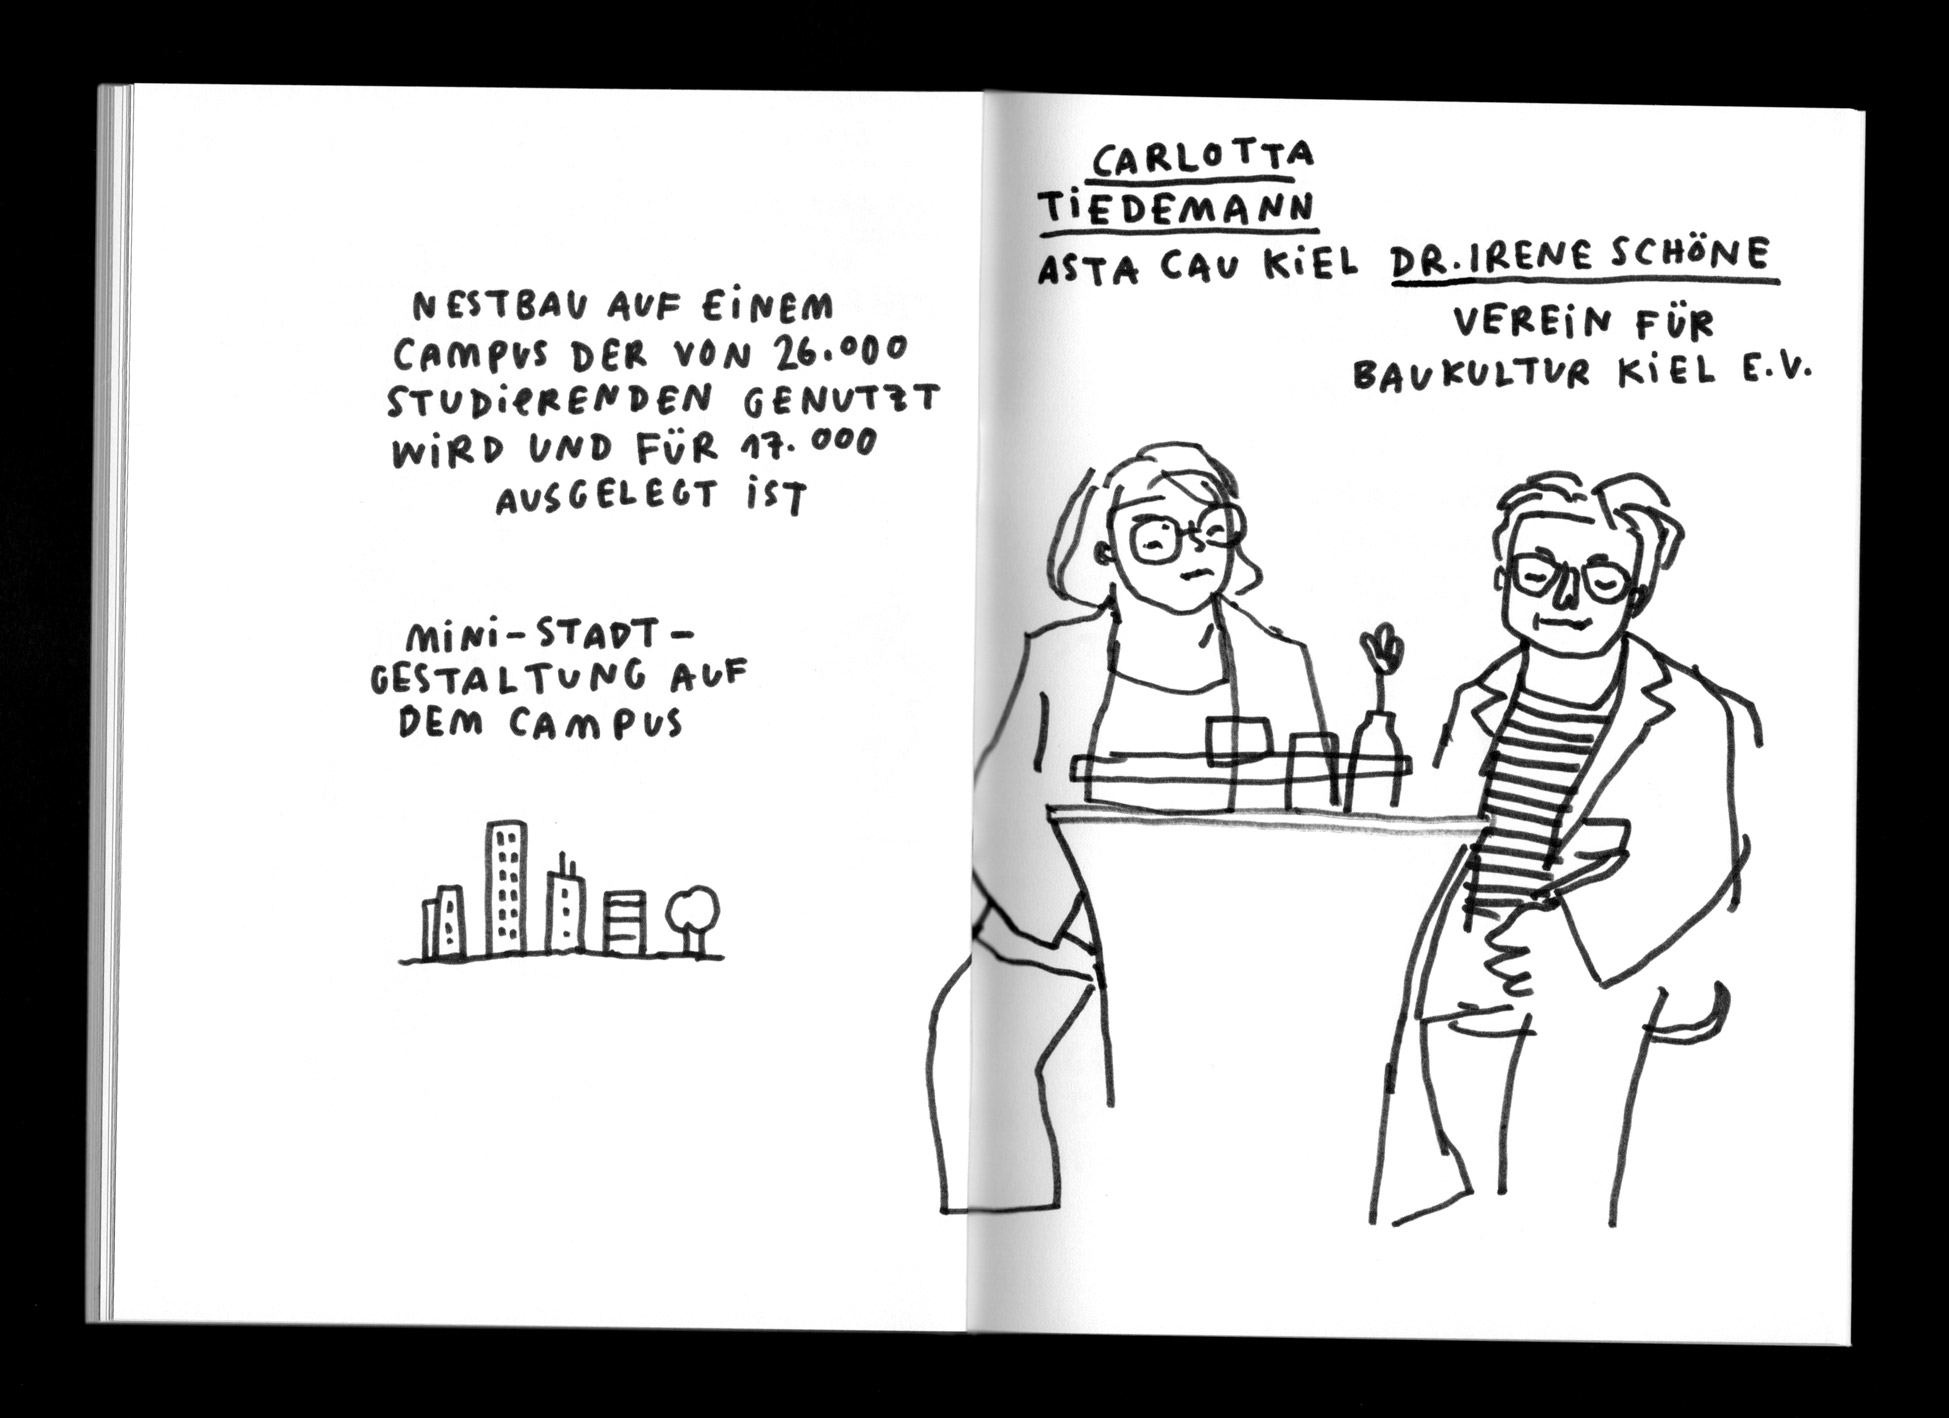 NESTBAU AUF EINEM
CAMPUS DER VON 26.000
STUDIERENDEN GENUTZT
WIRD UND FÜR 17.000
AUSGELEGT IST
MINI-STADT-
GESTALTUNG AUF
DEM CAMPUS
CARLOTTA
TIEDEMANN
ASTA CAU KIEL
DR. IRENE SCHÖNE
VEREIN FÜR
BAUKULTUR KIEL E.V.